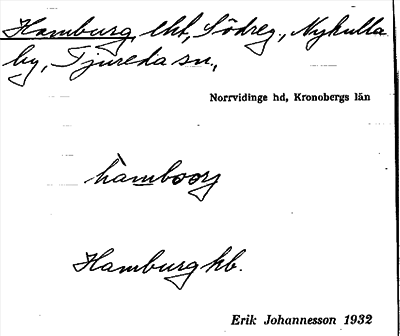 Hamburg, lht, Södreg., Nykulla
by, Tjureda sn.,
Norrvidinge hd, Kronobergs län
hàmbory
Hamburg kb.
Erik Johannesson 1932